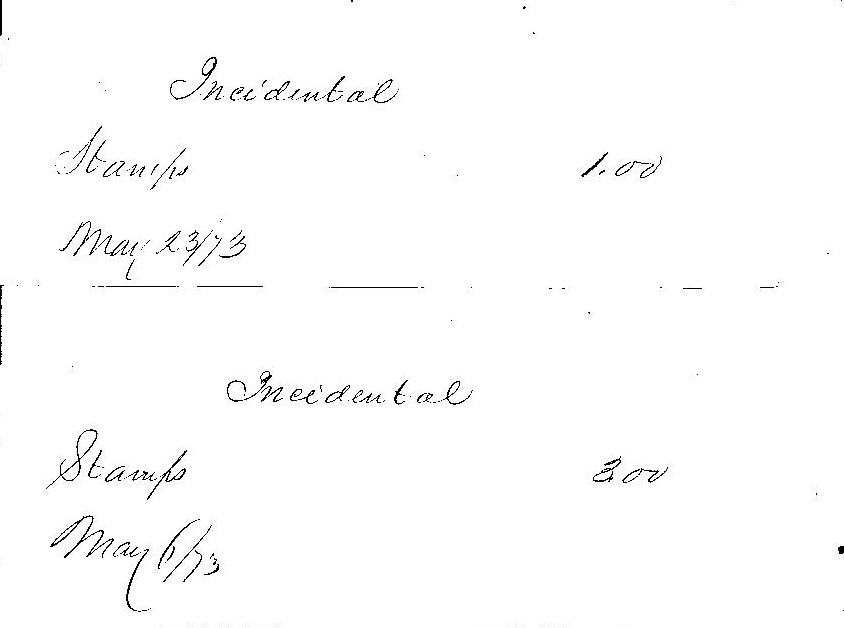 Incidental
Stamps 1.00
May 23/73
Incidental
Stamps 3.00
May 6/73